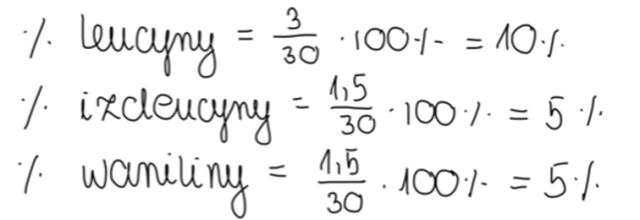 % leucyny = 3/30 · 100% = 10%
% izoleucyny = 1,5/30 · 100% = 5%
% waniliny = 1,5/30 · 100% = 5%